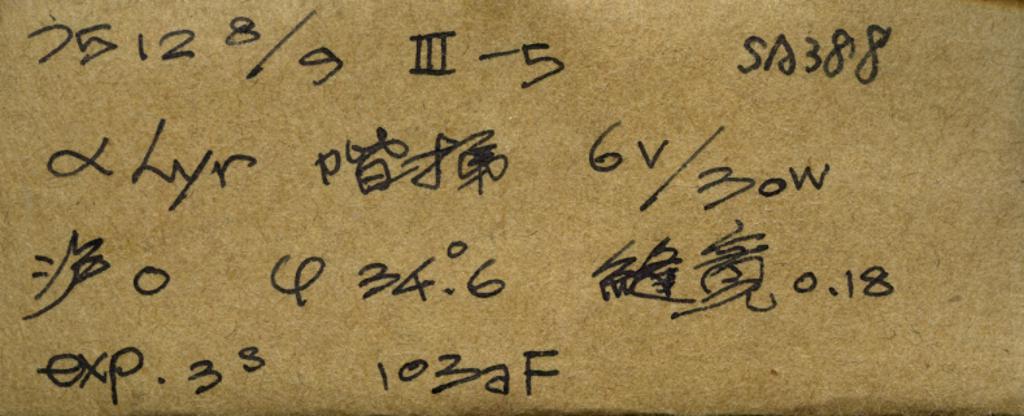 75 12 8/9 III-5 SA388
α Lyr 階梯 6V/30W
φ 34°.6 縫寬 0.18
exp. 3s 103aF